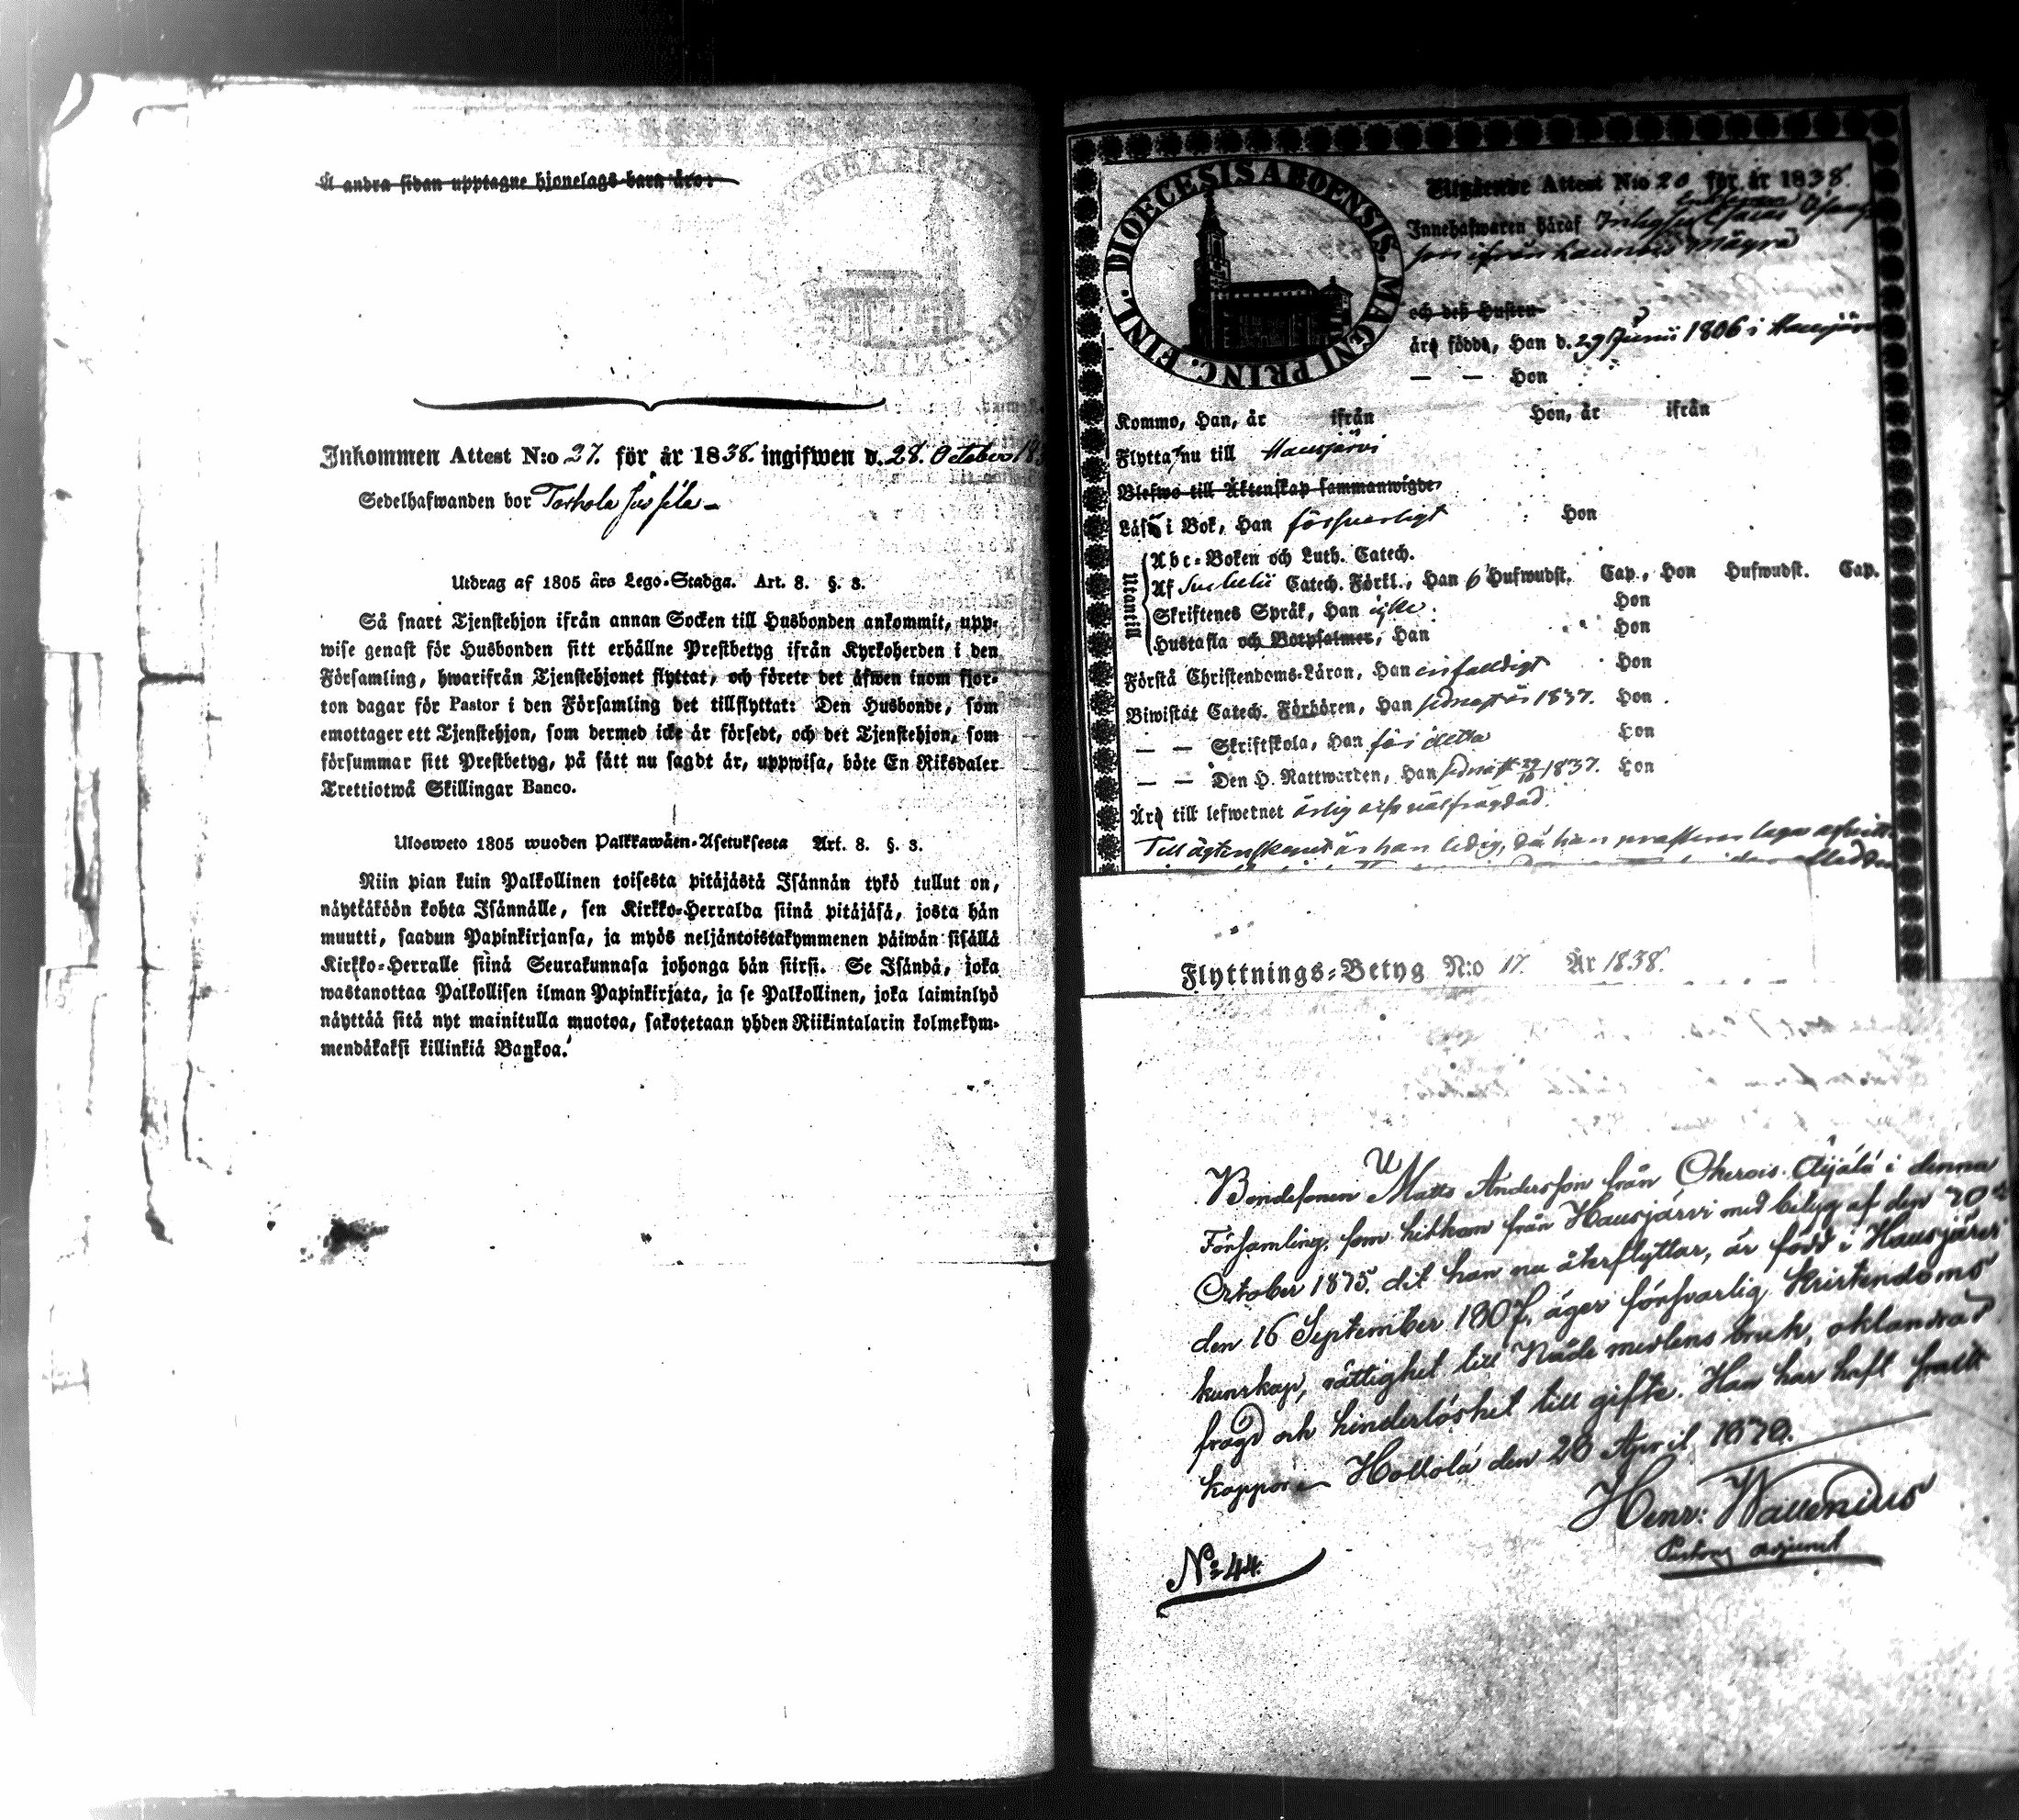 Å andra sidan upptagne hjonelags barn äro:
Inkommen Attest N:o 27. för år 1838. ingifwen d. 28. October 183
Sedelhafwanden bor Torhola Jussila
Utdrag af 1805 års Lego-Stadga. Art. 8. §. 3.
Så snart Tjenstehjon ifrån annan Socken till Husbonden ankommit, upp-
wise genast för Husbonden sitt erhållne Prestbetyg ifrån Kyrkoherden i den
Församling, hwarifrån Tjenstehjonet flyttat, och förete det äfwen inom fjor-
ton dagar för Pastor i den Församling det tillflyttat: Den Husbonde, som
emottager ett Tjenstehjon, som dermed icke är försedt, och det Tjenstehjon, som
försummar sitt Prestbetyg, på sätt nu sagdt är, uppwisa, böte En Riksdaler
Trettiotwå Skillingar Banco.
Ulosweto 1805 wuoden Palkkawäen-Asetuksesta Art. 8. §. 3.
Niin pian kuin Palkollinen toisesta pitäjästä Isännän tykö tullut on,
näyttäköön kohta Isännälle, sen Kirkko-Herralda siinä pitäjäsä, josta hän
muutti, saadun Papinkirjansa, ja myös neljäntoistakymmenen päiwän sisällä
Kirkko-Herralle siinä Seurakunnasa johonga hän siirsi. Se Isändä, joka
wastanottaa Palkollisen ilman Papinkirjata, ja se Palkollinen, joka laiminlyö
näyttää sitä nyt mainitulla muotoa, sakotetaan yhden Riikintalarin kolmekym-
mendäkaksi killinkiä Bankoa.
DIOECESIS ABOENSIS. MAGNI PRINC. FINL.
Utgående Attest N:o 20 för år 1838.
Innehafwaren häraf
son ifrån Mägrä
och deß Hustru
äro födde, Han d. 29 Junii 1806 i Hausjärvi
— — Hon
Kommo, Han, år ifrån Hon, år ifrån
Flytta nu till Hausjärvi
Blefwo till Äktenskap sammanwigde
Läsa i Bok, Han försvarligt Hon
Utantill
Abc-Boken och Luth. Catech.
Af Svebelii Catech. Förkl., Han 6 Hufwudst. Cap., Hon Hufwudst. Cap.
Skriftenes Språk, Han icke. Hon
Hustafla och Botpsalmer, Han Hon
Förstå Christendoms-Läran, Han enfaldigt Hon
Biwistat Catech. Förhören, Han sednast år 1837. Hon
— — Skriftskola, Han för detta Hon
— — Den H. Nattwarden, Han sednast 29/10 1837. Hon
Äro till lefwernet ärlig och välfrägdad.
Till ägtenskapet är han ledig, då han
Flyttnings-Betyg N:o 17. År 1838.
Bondesonen Matts Andersson från Okerois Äijälä i denna
Församling, som hitkom från Hausjärvi med betyg af den 20
October 1875. dit han nu återflyttar, är född i Hausjärvi
den 16 September 1807, äger försvarlig kristendoms
kunskap, rättighet till Nåde medlens bruk, oklandrad
frägd och hinderlöshet till gifte. Han har haft
koppor. Hollola den 26 April 1879.
Henr: Wallenius
Pastors adjunct
No 44.